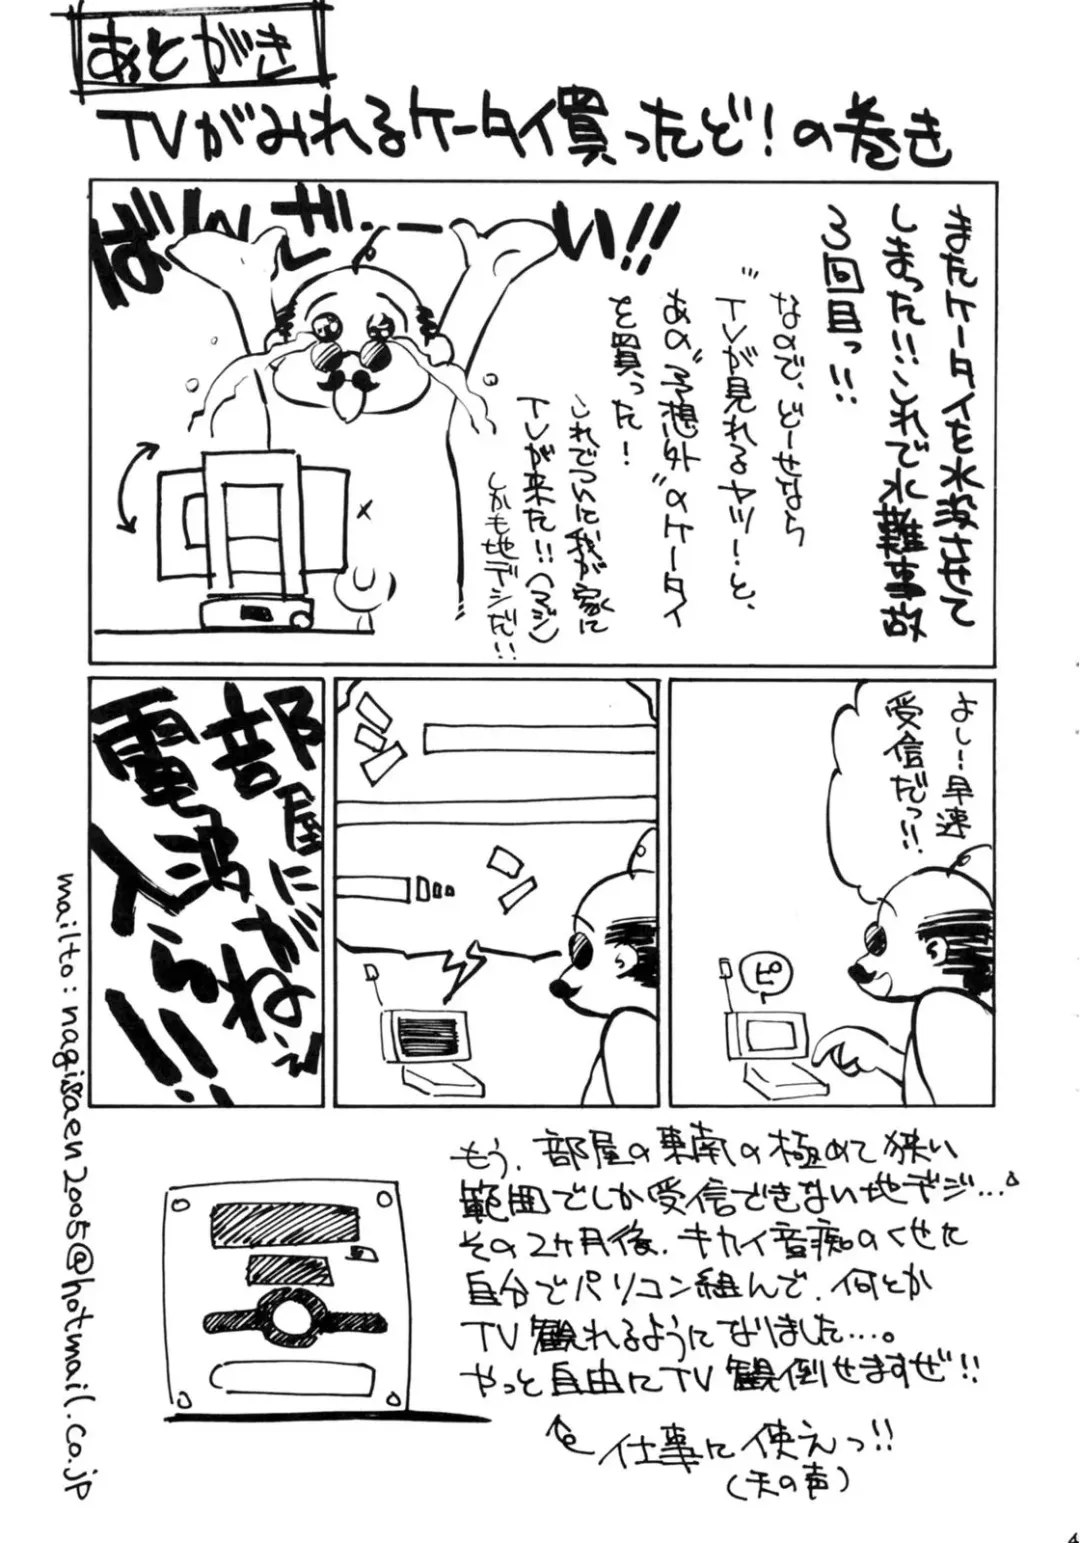 あとがき
TVがみれるケータイ買ったど!の巻き
またケータイを水没させて
しまった!!これで水難事故
3回目っ!!
なので、どーせなら
"TVが見れるヤツ!"と、
あの"予想外"のケータイ
を買った!
ばんざーい!!
これでついに我が家に
TVが来た!!(マジ)
しかも地デジだ!!
よし!早速
受信だっ!!
ピー
部屋に
電波が
入らねえ!!
もう、部屋の東南の極めて狭い
範囲でしか受信できない地デジ…。
その2ヶ月後、キカイ音痴のくせた
自分でパソコン組んで、何とか
TV観れるようになりました…。
やっと自由にTV観倒せますぜ!!
仕事に使えっ!!
(天の声)
mailto:nagisaen2005@hotmail.co.jp
4